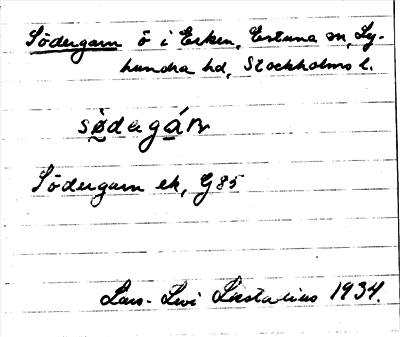 Södergarn ö i Erken, Estuna sn, Ly-
hundra hd, Stockholms l.
södergárn
Södergarn ek, G85
Lars-Levi Læstadius 1934.